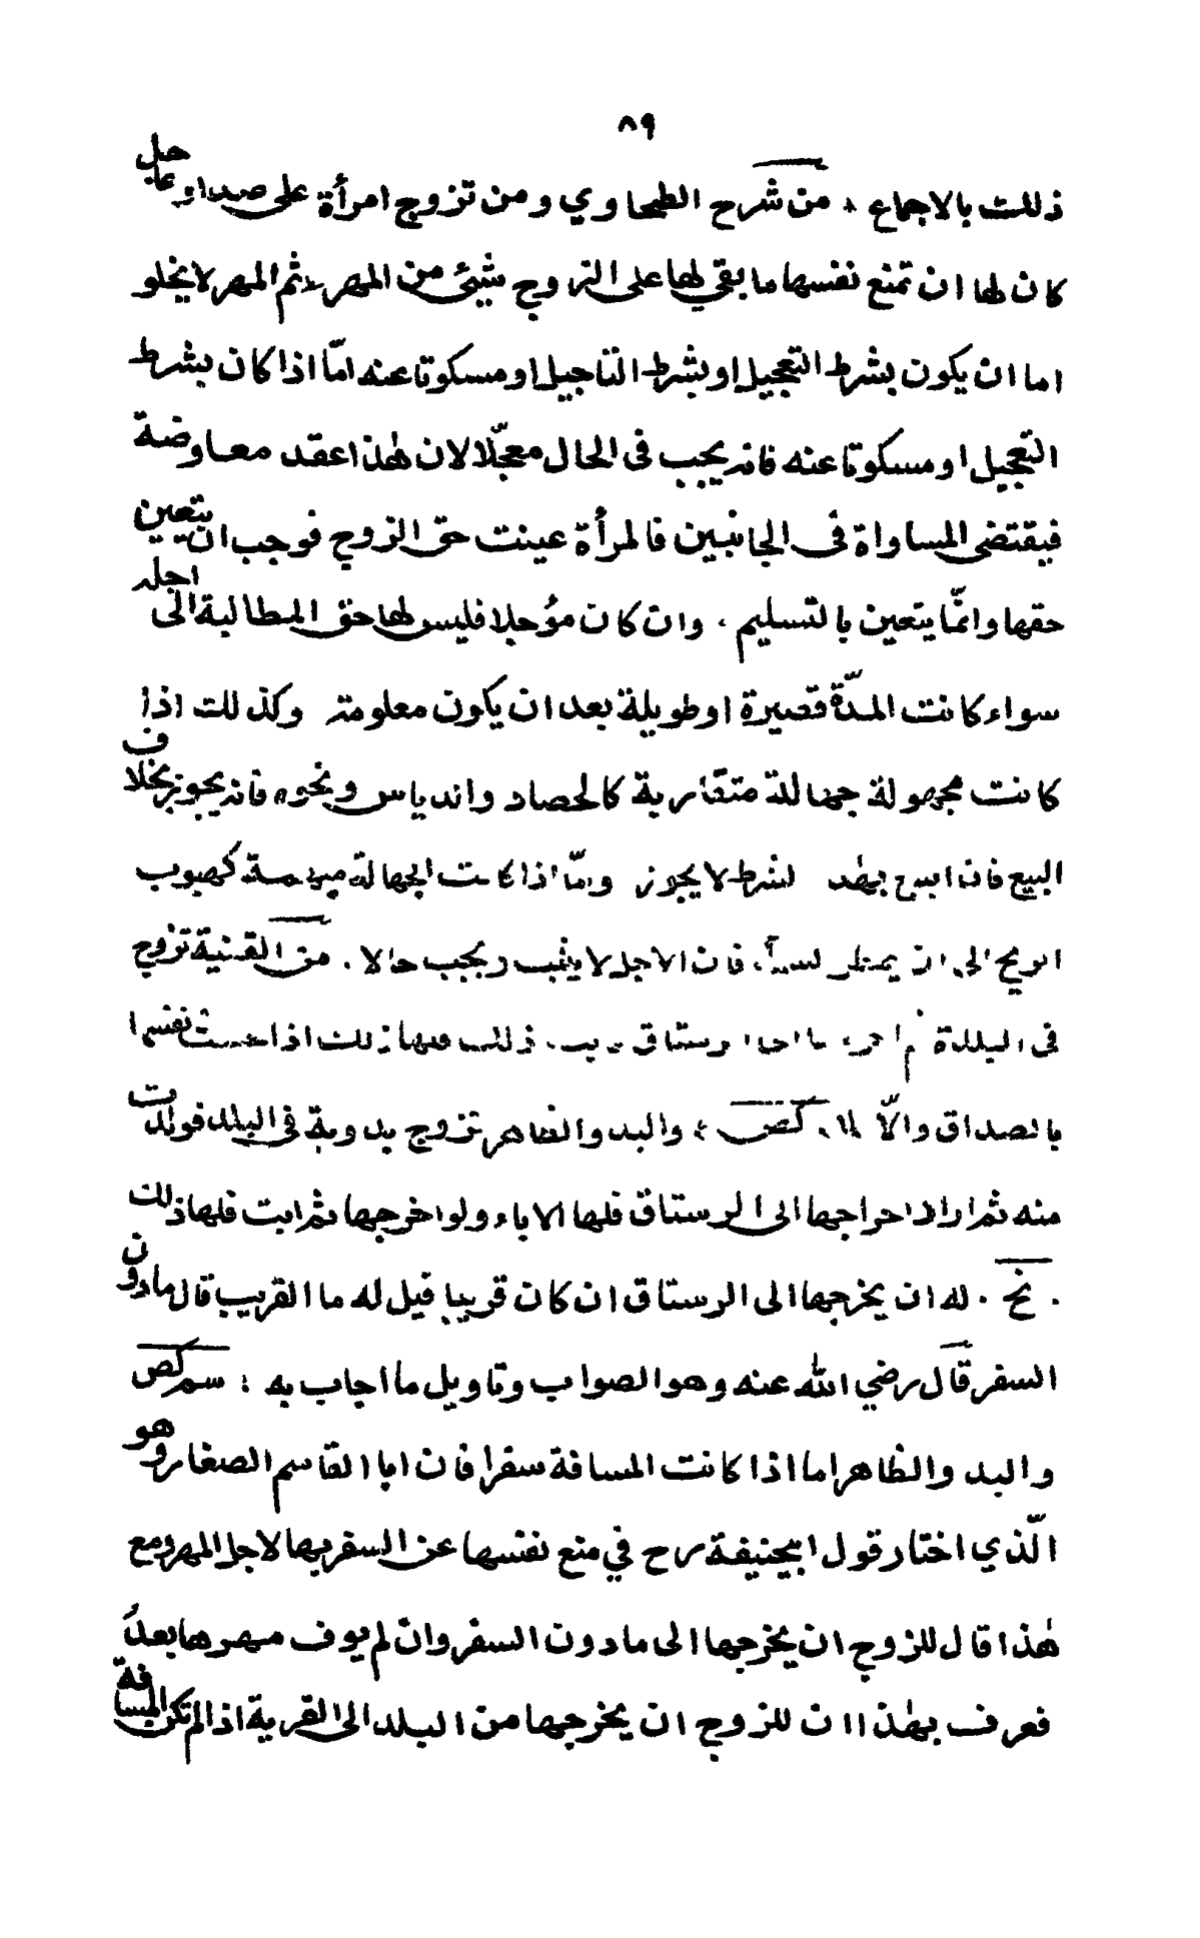 ٨٩
ذلك بالاجماع . من شرح الطحاوي ومن تزوج امرأة على صداق عاجل
كان لها ان تمنع نفسها ما بقي لها على الزوج شيئ من المهر ثم المهر لا يخلو
اما ان يكون بشرط التعجيل او بشرط التاجيل او مسكوتا عنه امّا اذا كان بشرط
التعجيل او مسكوتا عنه فانه يجب فى الحال معجّلا لان هٰذا عقد معاوضة
فيقتضى المساواة فى الجانبين فالمرأة عينت حق الزوج فوجب ان يتعين
حقها وانّما يتعين بالتسليم . وان كان مؤجلا فليس لها حق المطالبة الى اجله
سواء كانت المدّة قصيرة او طويلة بعد ان يكون معلومة وكذلك اذا
كانت مجهولة جهالة متقاربة كالحصاد والدياس ونحوه فانه يجوز بخلاف
البيع فان البيع بهٰذا الشرط لا يجوز وامّا اذا كانت الجهالة كهبوب
الريح الى ان يمطر السماء فان الاجل لا يثبت ويجب حالا . من القنية تزوج
فى البلدة رستاق ذلك فلها ذلك اذا نفسها
بالصداق والّا لا . كص ؛ والبدو الظاهر تزوج بدوية فى البلد فولدت
منه ثم اراد اخراجها الى الرستاق فلها الاباء ولو اخرجها ثم ابت فلها ذلك
. نخ . له ان يخرجها الى الرستاق ان كان قريبا قيل له ما القريب قال ما دون
السفر قال رضي الله عنه وهو الصواب وتاويل ما اجاب به ؛ سم كص
والبد والظاهر اما اذا كانت المسافة سفرا فان ابا القاسم الصفار وهو
الّذي اختار قول ابيحنيفة رح في منع نفسها عن السفر بها لاجل المهر ومع
هٰذا قال للزوج ان يخرجها الى ما دون السفر وان لم يوف مهرها بعدُ
فعرف بهٰذا ان للزوج ان يخرجها من البلد الى القرية اذا لم تكن المسافة